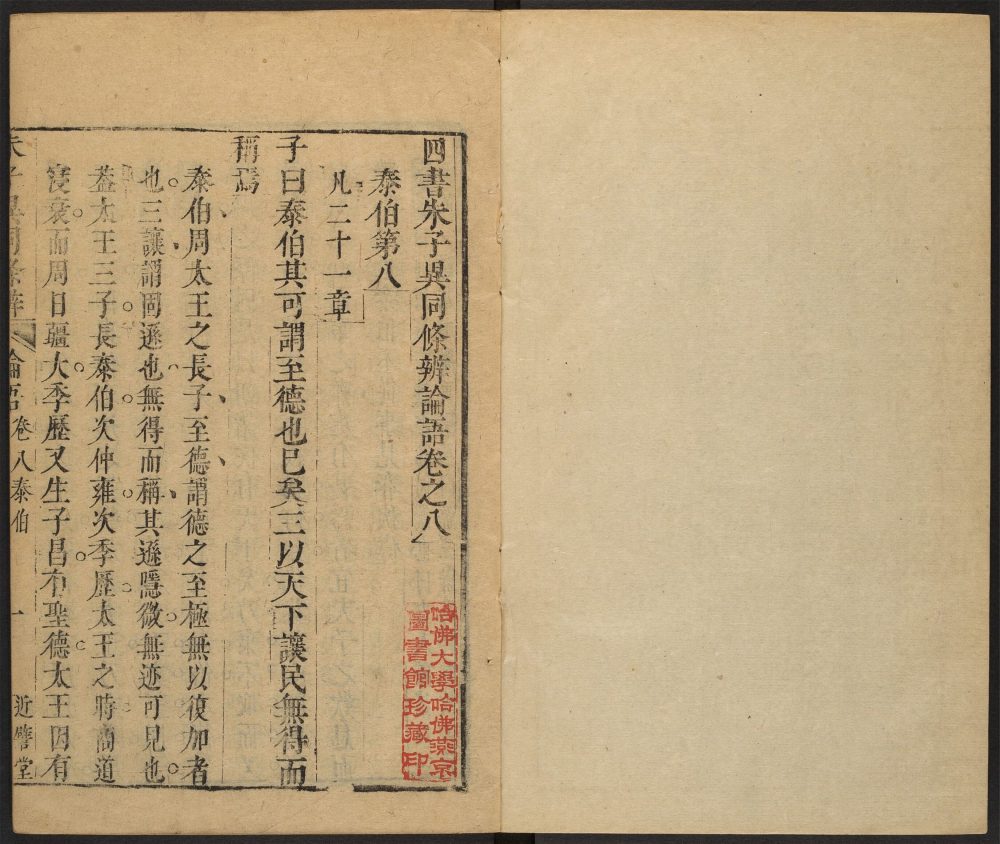 四書朱子異同條辨論語卷之八
泰伯第八
凡二十一章
子曰泰伯其可謂至德也已矣三以天下讓民無得而
稱焉
泰伯周太王之長子至德謂德之至極無以復加者
也三讓謂固遜也無得而稱其遜隱微無迹可見也
葢太王三子長泰伯次仲雍次季歷太王之時商道
寖衰而周日疆大季歷又生子昌有聖德太王因有
朱子異同條辨 論語卷八泰伯 一 近譬堂
哈佛大學哈佛燕京
圖書館珍藏印